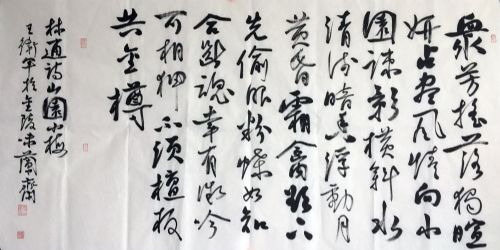 衆芳摇落獨暄
妍占盡風情向小
園疎影橫斜水
清浅暗香浮動月
黄昏霜禽欲下
先偷眼粉蝶如知
合斷魂幸有微吟
可相狎不須檀板
共金樽
林逋詩山園小梅
王衛军於金陵未蘭齋